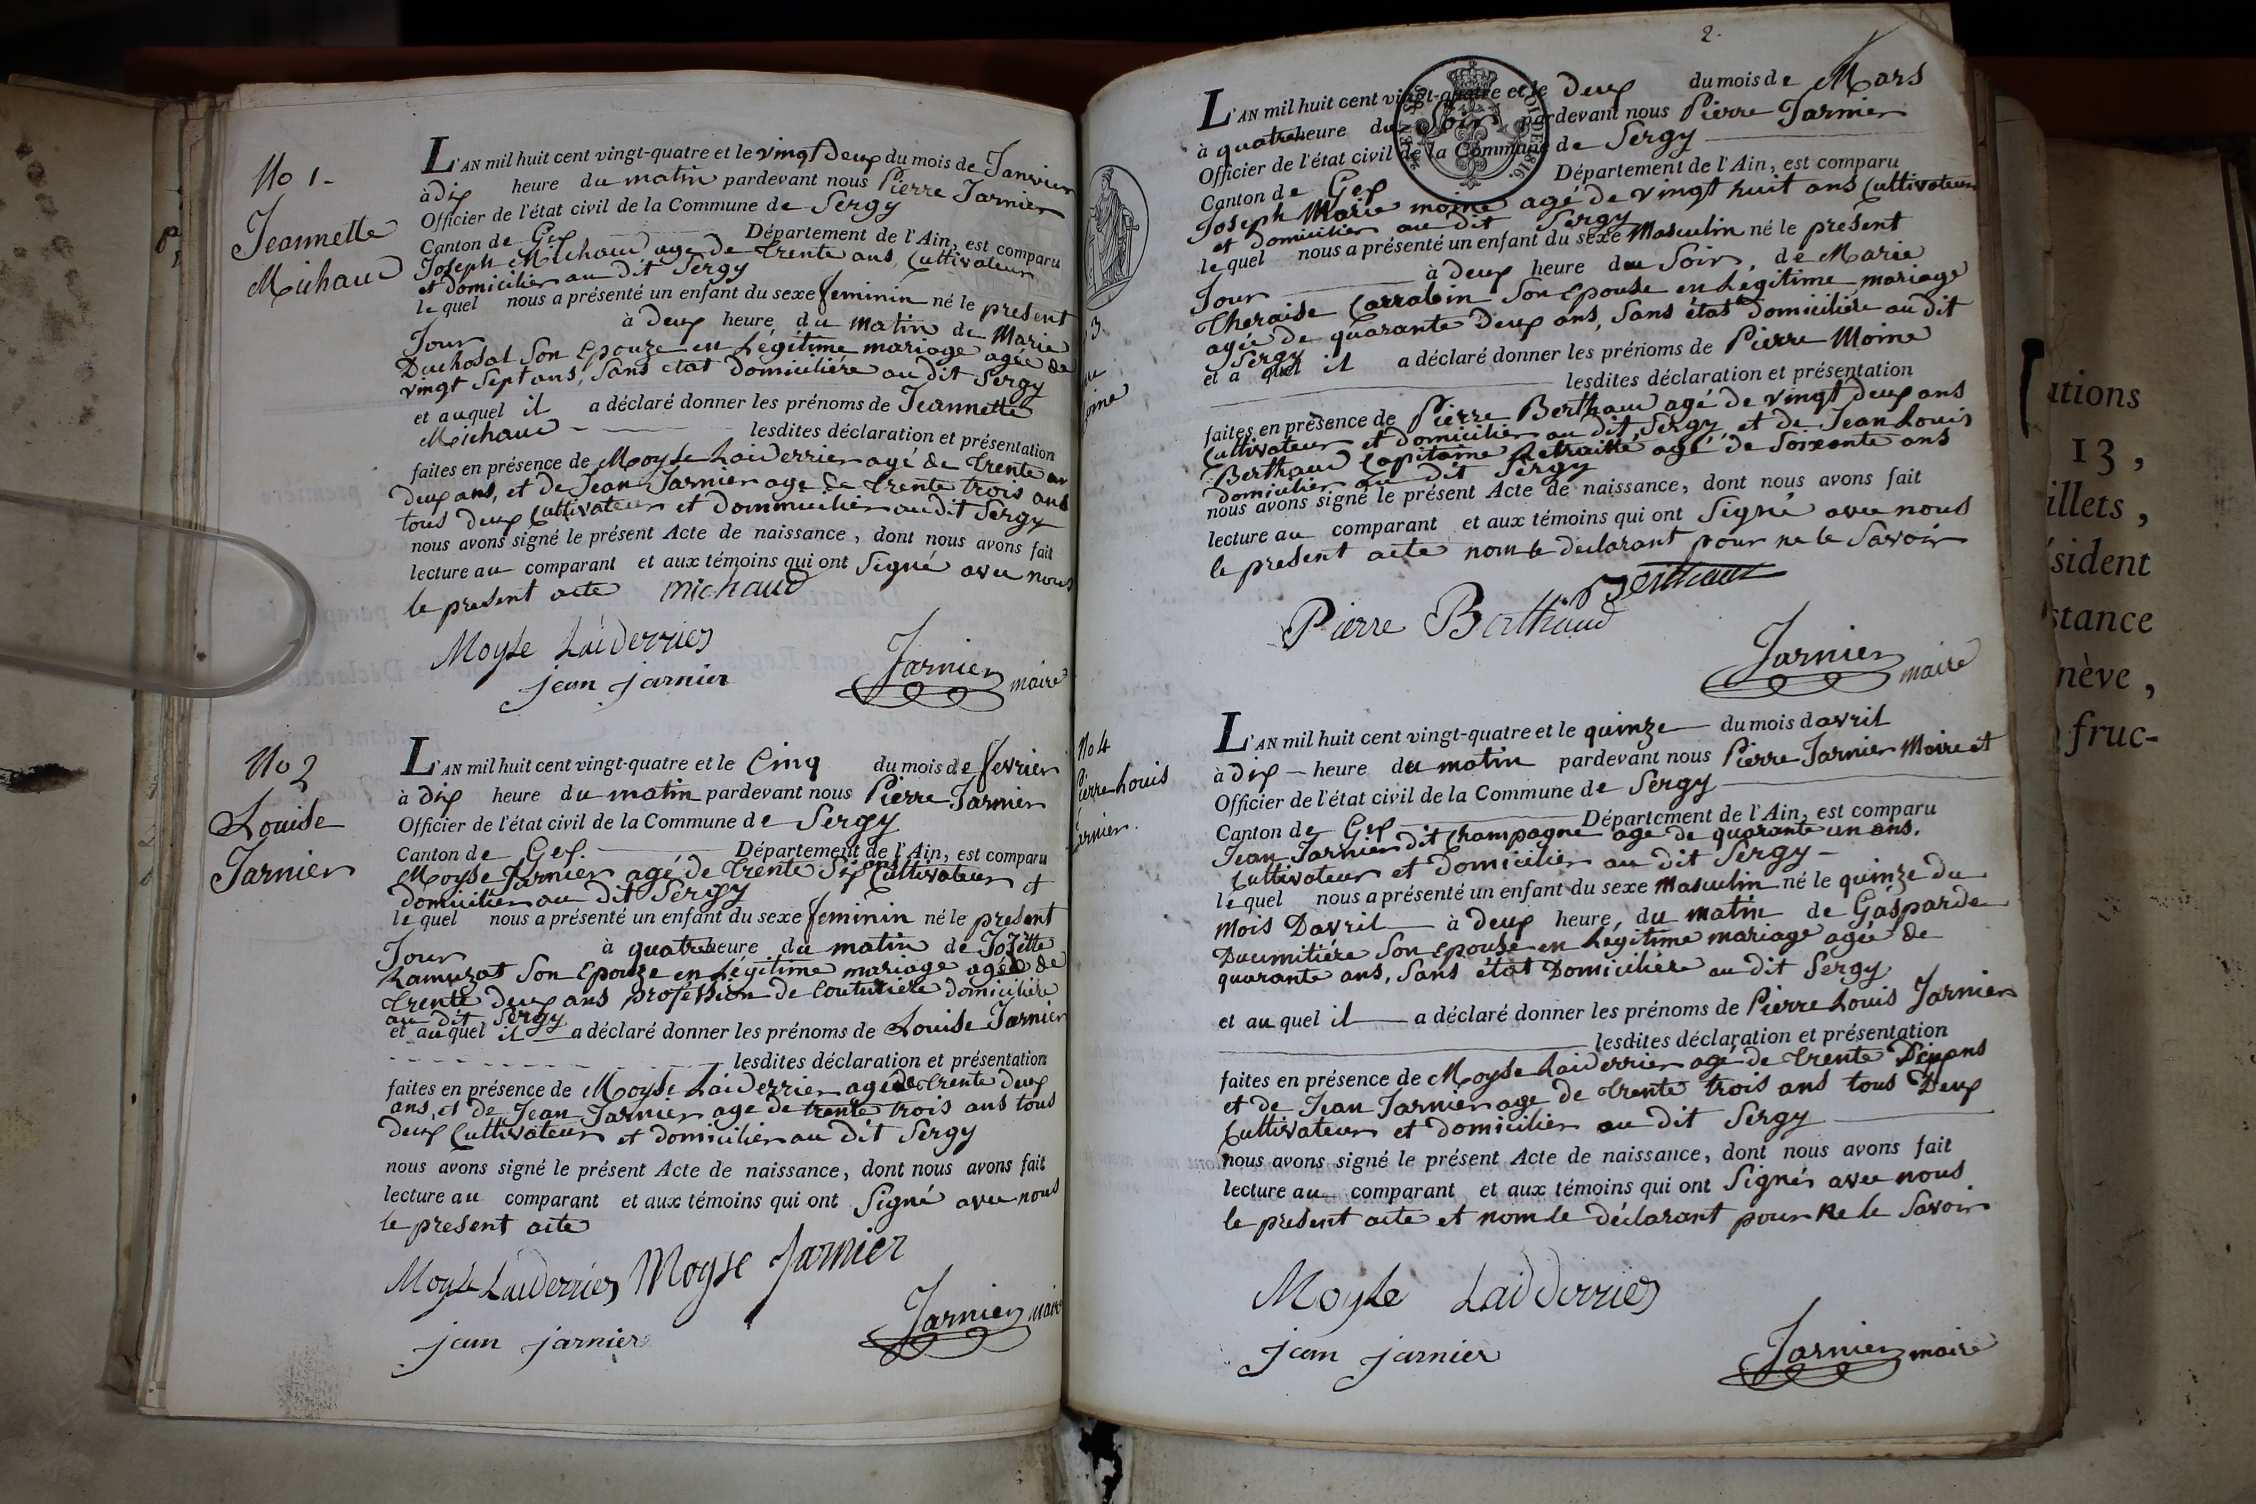 No 1-
Jeannette
Michaud
L'AN mil huit cent vingt-quatre et le vingt Deux du mois de Janvier
à dix heure du matin pardevant nous Pierre Jarnier
Officier de l'état civil de la Commune de Sergy
Canton de Gex Département de l'Ain, est comparu
Joseph Michaud agé de trente ans, Cultivateur
et domicilier au dit Sergy
le quel nous a présenté un enfant du sexe feminin né le present
Jour à deux heure du matin de Marie
Duchosal Son Epouze en Légitime mariage agée de
vingt Sept ans, Sans état domicilière au dit Sergy
et auquel il a déclaré donner les prénoms de Jeannette
Michaud lesdites déclaration et présentation
faites en présence de Moyse Laiderrier agé de trente
deux ans, et de Jean Jarnier age de trente trois ans
tous deux Cultivateur et dommicilier au dit Sergy
nous avons signé le présent Acte de naissance, dont nous avons fait
lecture au comparant et aux témoins qui ont Signé avec nous
le present acte michaud
Moyse Laiderrier
jean jarnier Jarnier maire
No 2
Louise
Jarnier
L'AN mil huit cent vingt-quatre et le Cinq du mois de fevrier
à dix heure du matin pardevant nous Pierre Jarnier
Officier de l'état civil de la Commune de Sergy
Canton de Gex. Département de l'Ain, est comparu
Moyse Jarnier agé de trente Six ans Cultivateur et
domicilier au dit Sergy
le quel nous a présenté un enfant du sexe feminin né le present
Jour à quatre heure du matin de Jozètte
Ramuzat Son Epouze en Légitime mariage agée de
trente deux ans profession de Coututiere domicilière
au dit Sergy
et au quel il a déclaré donner les prénoms de Louise Jarnier
lesdites déclaration et présentation
faites en présence de Moyse Laiderrier age de trente deux
ans, et de Jean Jarnier age de trente trois ans tous
deux Cultivateur et domicilier au dit Sergy
nous avons signé le présent Acte de naissance, dont nous avons fait
lecture au comparant et aux témoins qui ont Signé avec nous
le present acte
Moyse Laiderrier Moyse Jarnier
jean jarnier Jarnier maire
2.
3
oine
L'AN mil huit cent vingt-quatre et le deux du mois de Mars
à quatre heure du Soir pardevant nous Pierre Jarnier
Officier de l'état civil de la Commune de Sergy
Canton de Gex Département de l'Ain, est comparu
Joseph Marie moine agé de vingt huit ans Cultivateur
et domicilier au dit Sergy
le quel nous a présenté un enfant du sexe Masculin né le present
Jour à deux heure du Soir, de Marie
theraise Carrabin Son Epouse en Légitime mariage
agée de quarante deux ans, Sans état domicilière au dit
Sergy
et a quel il a déclaré donner les prénoms de Pierre Moine
lesdites déclaration et présentation
faites en présence de Pierre Berthaud agé de vingt deux ans
Cultivateur et domicilier au dit Sergy et de Jean Louis
Berthaud Capitaine Retraitté agé de Soixente ans
domicilier au dit Sergy
nous avons signé le présent Acte de naissance, dont nous avons fait
lecture au comparant et aux témoins qui ont Signé avec nous
le present acte nom le declarant pour ne le Savoir
Pierre Berthaud Berthaud
Jarnier maire
No 4
Pierre Louis
Jarnier.
L'AN mil huit cent vingt-quatre et le quinze du mois d avril
à dix heure du matin pardevant nous Pierre Jarnier Maire et
Officier de l'état civil de la Commune de Sergy
Canton de Gex Département de l'Ain, est comparu
Jean Jarnier dit Champagne age de quarante un ans,
Cultivateur et domicilier au dit Sergy
le quel nous a présenté un enfant du sexe Masculin né le quinze du
mois Davril à deux heure, du matin de Gasparde
Ducimitiére Son Epouse en Légitime mariage agée de
quarante ans, Sans état Domicilière au dit Sergy
et au quel il a déclaré donner les prénoms de Pierre Louis Jarnier
lesdites déclaration et présentation
faites en présence de Moyse Laiderrier agé de trente Deux ans
et de Jean Jarnier age de trente trois ans tous Deux
Cultivateur et domicilier au dit Sergy
nous avons signé le présent Acte de naissance, dont nous avons fait
lecture au comparant et aux témoins qui ont Signés avec nous
le present acte et nom le déclarant pour ne le Savoir
Moyse Laidderrier
jean jarnier Jarnier maire
ations
13,
illets,
sident
stance
nève,
fruc-